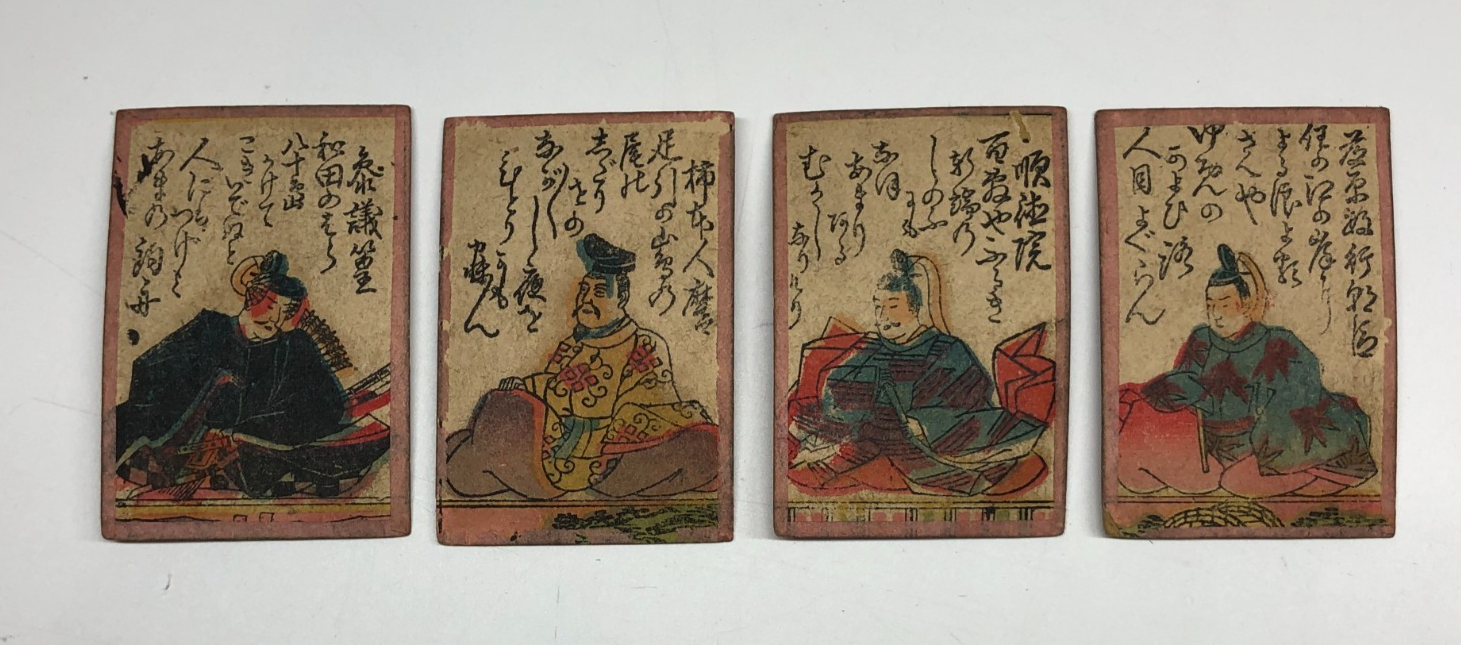 参議篁
和田のはら
八十島
かけて
こぎいでぬと
人にはつげよ
あまの釣舟
柿本人麿
足引の山鳥の
尾の
しだり
をの
なが〳〵し夜を
ひとりかも
寐ん
順徳院
百敷やふるき
軒端の
しのぶ
にも
なほ
あまり
ある
むかし
なりけり
藤原敏行朝臣
住の江の岸に
よる浪よる
さへや
ゆめの
かよひ路
人目よぐらん